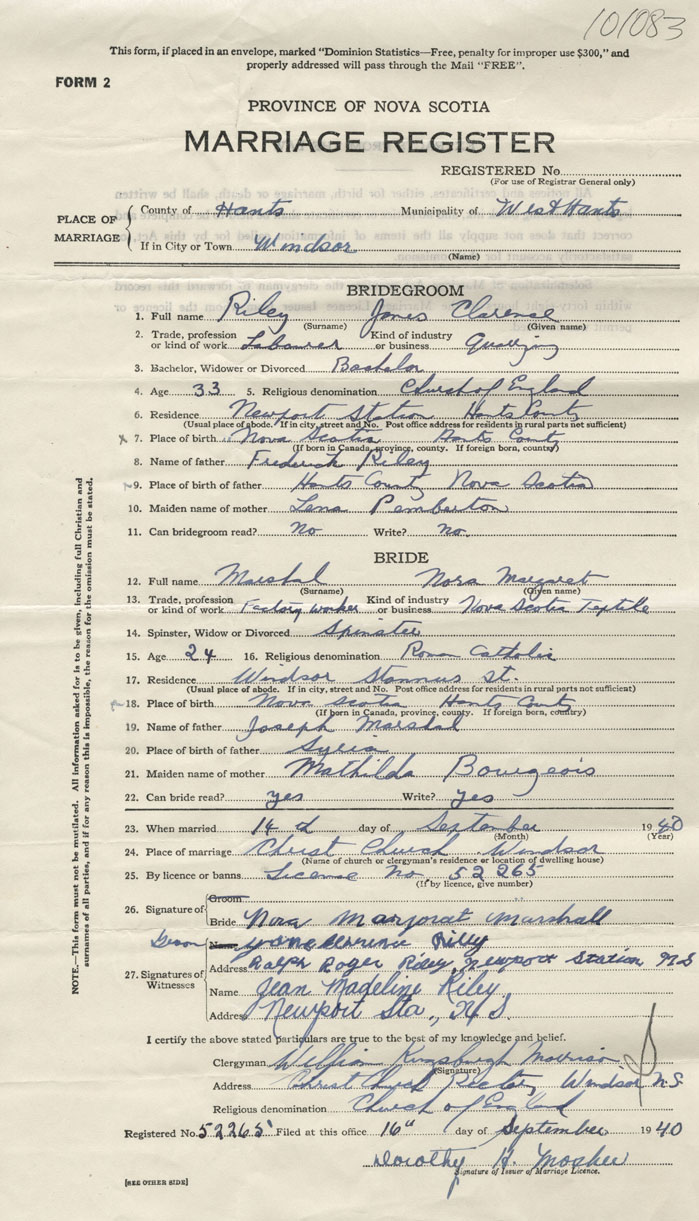 101083
This form, if placed in an envelope, marked "Dominion Statistics—Free, penalty for improper use $300," and
properly addressed will pass through the Mail "FREE".
FORM 2
PROVINCE OF NOVA SCOTIA
MARRIAGE REGISTER
REGISTERED No.
(For use of Registrar General only)
PLACE OF MARRIAGE
County of Hants Municipality of West Hants
If in City or Town Windsor
(Name)
BRIDEGROOM
1. Full name Riley James Clarence
(Surname) (Given name)
2. Trade, profession or kind of work Labourer Kind of industry or business Quarrying
3. Bachelor, Widower or Divorced Bachelor
4. Age 33 5. Religious denomination Church of England
6. Residence Newport Station Hants County
(Usual place of abode. If in city, street and No. Post office address for residents in rural parts not sufficient)
x 7. Place of birth Nova Scotia Hants County
(If born in Canada, province, county. If foreign born, country)
8. Name of father Frederick Riley
9. Place of birth of father Hants County Nova Scotia
10. Maiden name of mother Lena Pemberton
11. Can bridegroom read? No Write? No.
BRIDE
12. Full name Marshal Nora Margaret
(Surname) (Given name)
13. Trade, profession or kind of work Factory worker Kind of industry or business Nova Scotia Textile
14. Spinster, Widow or Divorced Spinster
15. Age 24 16. Religious denomination Roman Catholic
17. Residence Windsor Stannus St.
(Usual place of abode. If in city, street and No. Post office address for residents in rural parts not sufficient)
18. Place of birth Nova Scotia Hants County
(If born in Canada, province, county. If foreign born, country)
19. Name of father Joseph Marshal
20. Place of birth of father Syria
21. Maiden name of mother Mathilda Bourgeois
22. Can bride read? yes Write? yes
23. When married 14th day of September 1940
(Month) (Year)
24. Place of marriage Christ Church Windsor
(Name of church or clergyman's residence or location of dwelling house)
25. By licence or banns License No 52265
(If by licence, give number)
26. Signature of Groom
Bride Nora Margorat Marshall
Groom Name Clarence Riley
27. Signatures of Witnesses
Address Ralph Roger Riley, Newport Station N.S
Name Jean Madeline Riley
Address Newport Sta., N.S.
I certify the above stated particulars are true to the best of my knowledge and belief.
Clergyman William Kingsburgh Morrison
(Signature)
Address Christ Church Rectory Windsor N.S.
Religious denomination Church of England
Registered No. 52265 Filed at this office 16" day of September 1940
Dorothy H. Mosher
Signature of Issuer of Marriage Licence.
[SEE OTHER SIDE]
NOTE.—This form must not be mutilated. All information asked for is to be given, including full Christian and
surnames of all parties, and if for any reason this is impossible, the reason for the omission must be stated.